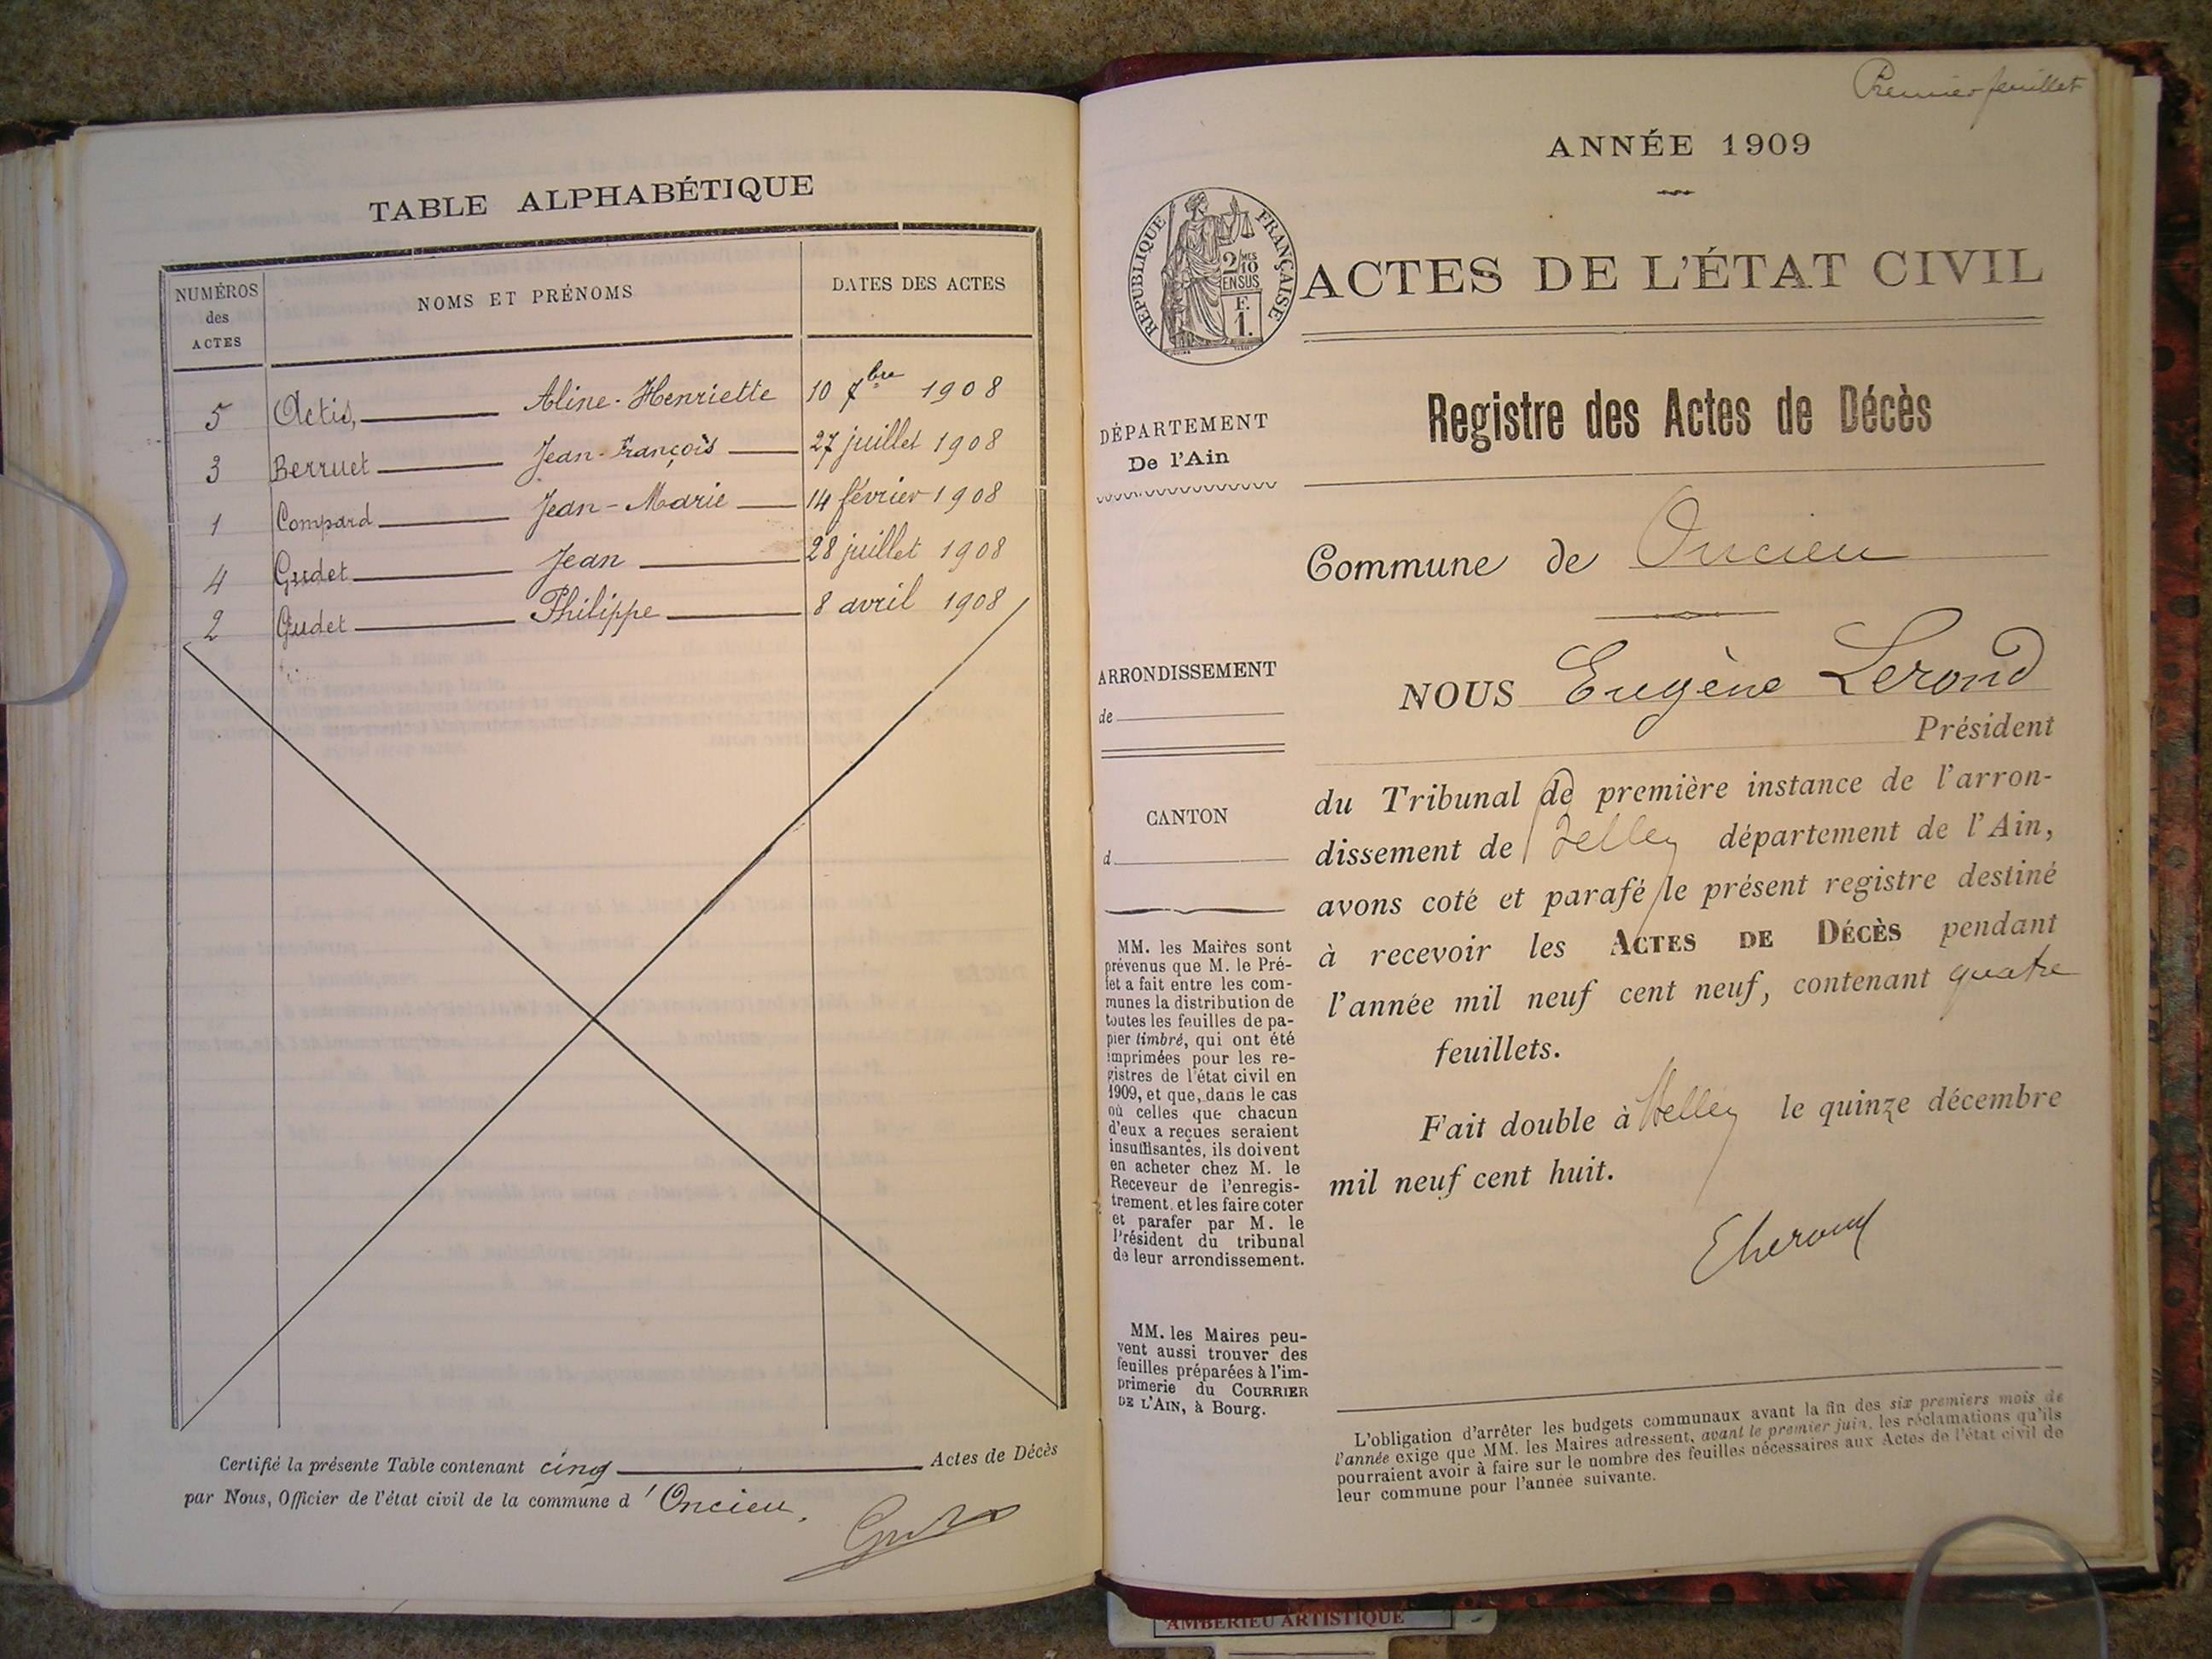 TABLE ALPHABÉTIQUE
NUMÉROS des ACTES NOMS ET PRÉNOMS DATES DES ACTES
5 Actis, Aline-Henriette 10 7bre 1908
3 Berruet Jean-François 27 juillet 1908
1 Compard Jean-Marie 14 février 1908
4 Gudet Jean 28 juillet 1908
2 Gudet Philippe 8 avril 1908
Certifié la présente Table contenant cinq Actes de Décès
par Nous, Officier de l'état civil de la commune d'Oncieu.
Premier feuillet
ANNÉE 1909
RÉPUBLIQUE FRANÇAISE
2 MES
10
EN SUS
F.
1.
ACTES DE L'ÉTAT CIVIL
DÉPARTEMENT
De l'Ain
Registre des Actes de Décès
Commune de Oncieu
ARRONDISSEMENT
de
CANTON
d
MM. les Maires sont
prévenus que M. le Pré-
fet a fait entre les com-
munes la distribution de
toutes les feuilles de pa-
pier timbré, qui ont été
imprimées pour les re-
gistres de l'état civil en
1909, et que, dans le cas
où celles que chacun
d'eux a reçues seraient
insuffisantes, ils doivent
en acheter chez M. le
Receveur de l'enregis-
trement, et les faire coter
et parafer par M. le
Président du tribunal
de leur arrondissement.
MM. les Maires peu-
vent aussi trouver des
feuilles préparées à l'im-
primerie du COURRIER
DE L'AIN, à Bourg.
NOUS Eugène Lerond
Président
du Tribunal de première instance de l'arron-
dissement de Belley département de l'Ain,
avons coté et parafé le présent registre destiné
à recevoir les ACTES DE DÉCÈS pendant
l'année mil neuf cent neuf, contenant quatre
feuillets.
Fait double à Belley le quinze décembre
mil neuf cent huit.
ELerond
L'obligation d'arrêter les budgets communaux avant la fin des six premiers mois de
l'année exige que MM. les Maires adressent, avant le premier juin, les réclamations qu'ils
pourraient avoir à faire sur le nombre des feuilles nécessaires aux Actes de l'état civil de
leur commune pour l'année suivante.
AMBERIEU ARTISTIQUE